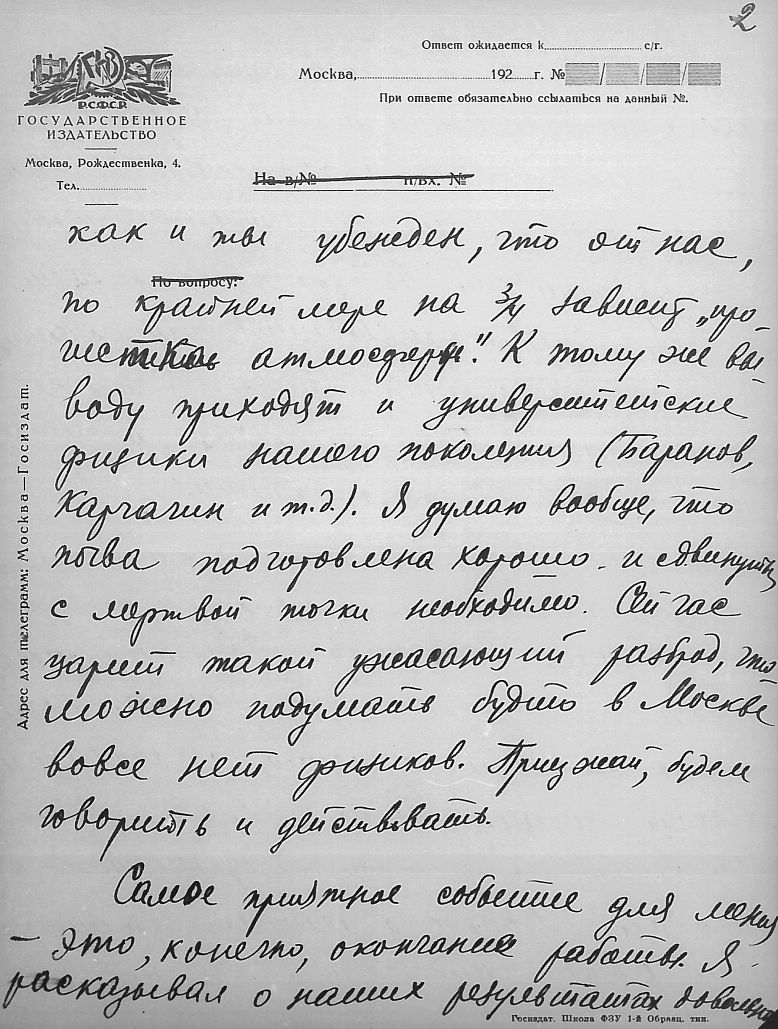 2
Ответ ожидается к............ с/г.
Москва,............192......г. №
При ответе обязательно ссылаться на данный №.
Р.С.Ф.С.Р.
ГОСУДАРСТВЕННОЕ
ИЗДАТЕЛЬСТВО
Москва, Рождественка, 4.
Тел.............
На в/№ п/вх. №
как и ты убежден, что от нас,
По вопросу:
по крайней мере на 3/4 зависит „про-
чистка атмосферы". К тому же вы-
воду приходят и университетские
физики нашего поколения (Баранов,
Карчагин и т.д.). Я думаю вообще, что
почва подготовлена хорошо и сдвинуть
с мертвой точки необходимо. Сейчас
царит такой ужасающий разброд, что
можно подумать будто в Москве
вовсе нет физиков. Приезжай, будем
говорить и действовать.
Самое приятное событие для меня
— это, конечно, окончание работы. Я
расказывал о наших результатах довольно
Адрес для телеграмм: Москва—Госиздат.
Госиздат. Школа ФЗУ 1-й Образц. тип.